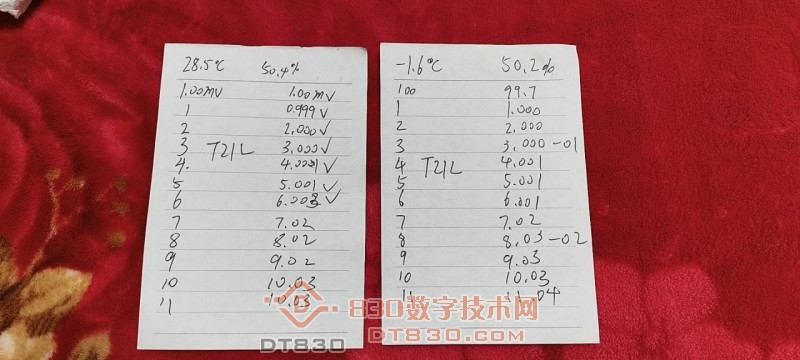 28.5℃ 50.4%
1.00mV 1.00mV
1 0.999✓
2 2.000✓
3 3.000✓
T21L
4. 4.001✓
5 5.001✓
6 6.003✓
7 7.02
8 8.02
9 9.02
10 10.03
11 10.03
-1.6℃ 50.2%
100 99.7
1 1.000
2 2.000
3 3.000-01
4 T21L 4.001
5 5.001
6 6.001
7 7.02
8 8.03-02
9 9.03
10 10.03
11 11.04
830数字技术网
DT830.COM